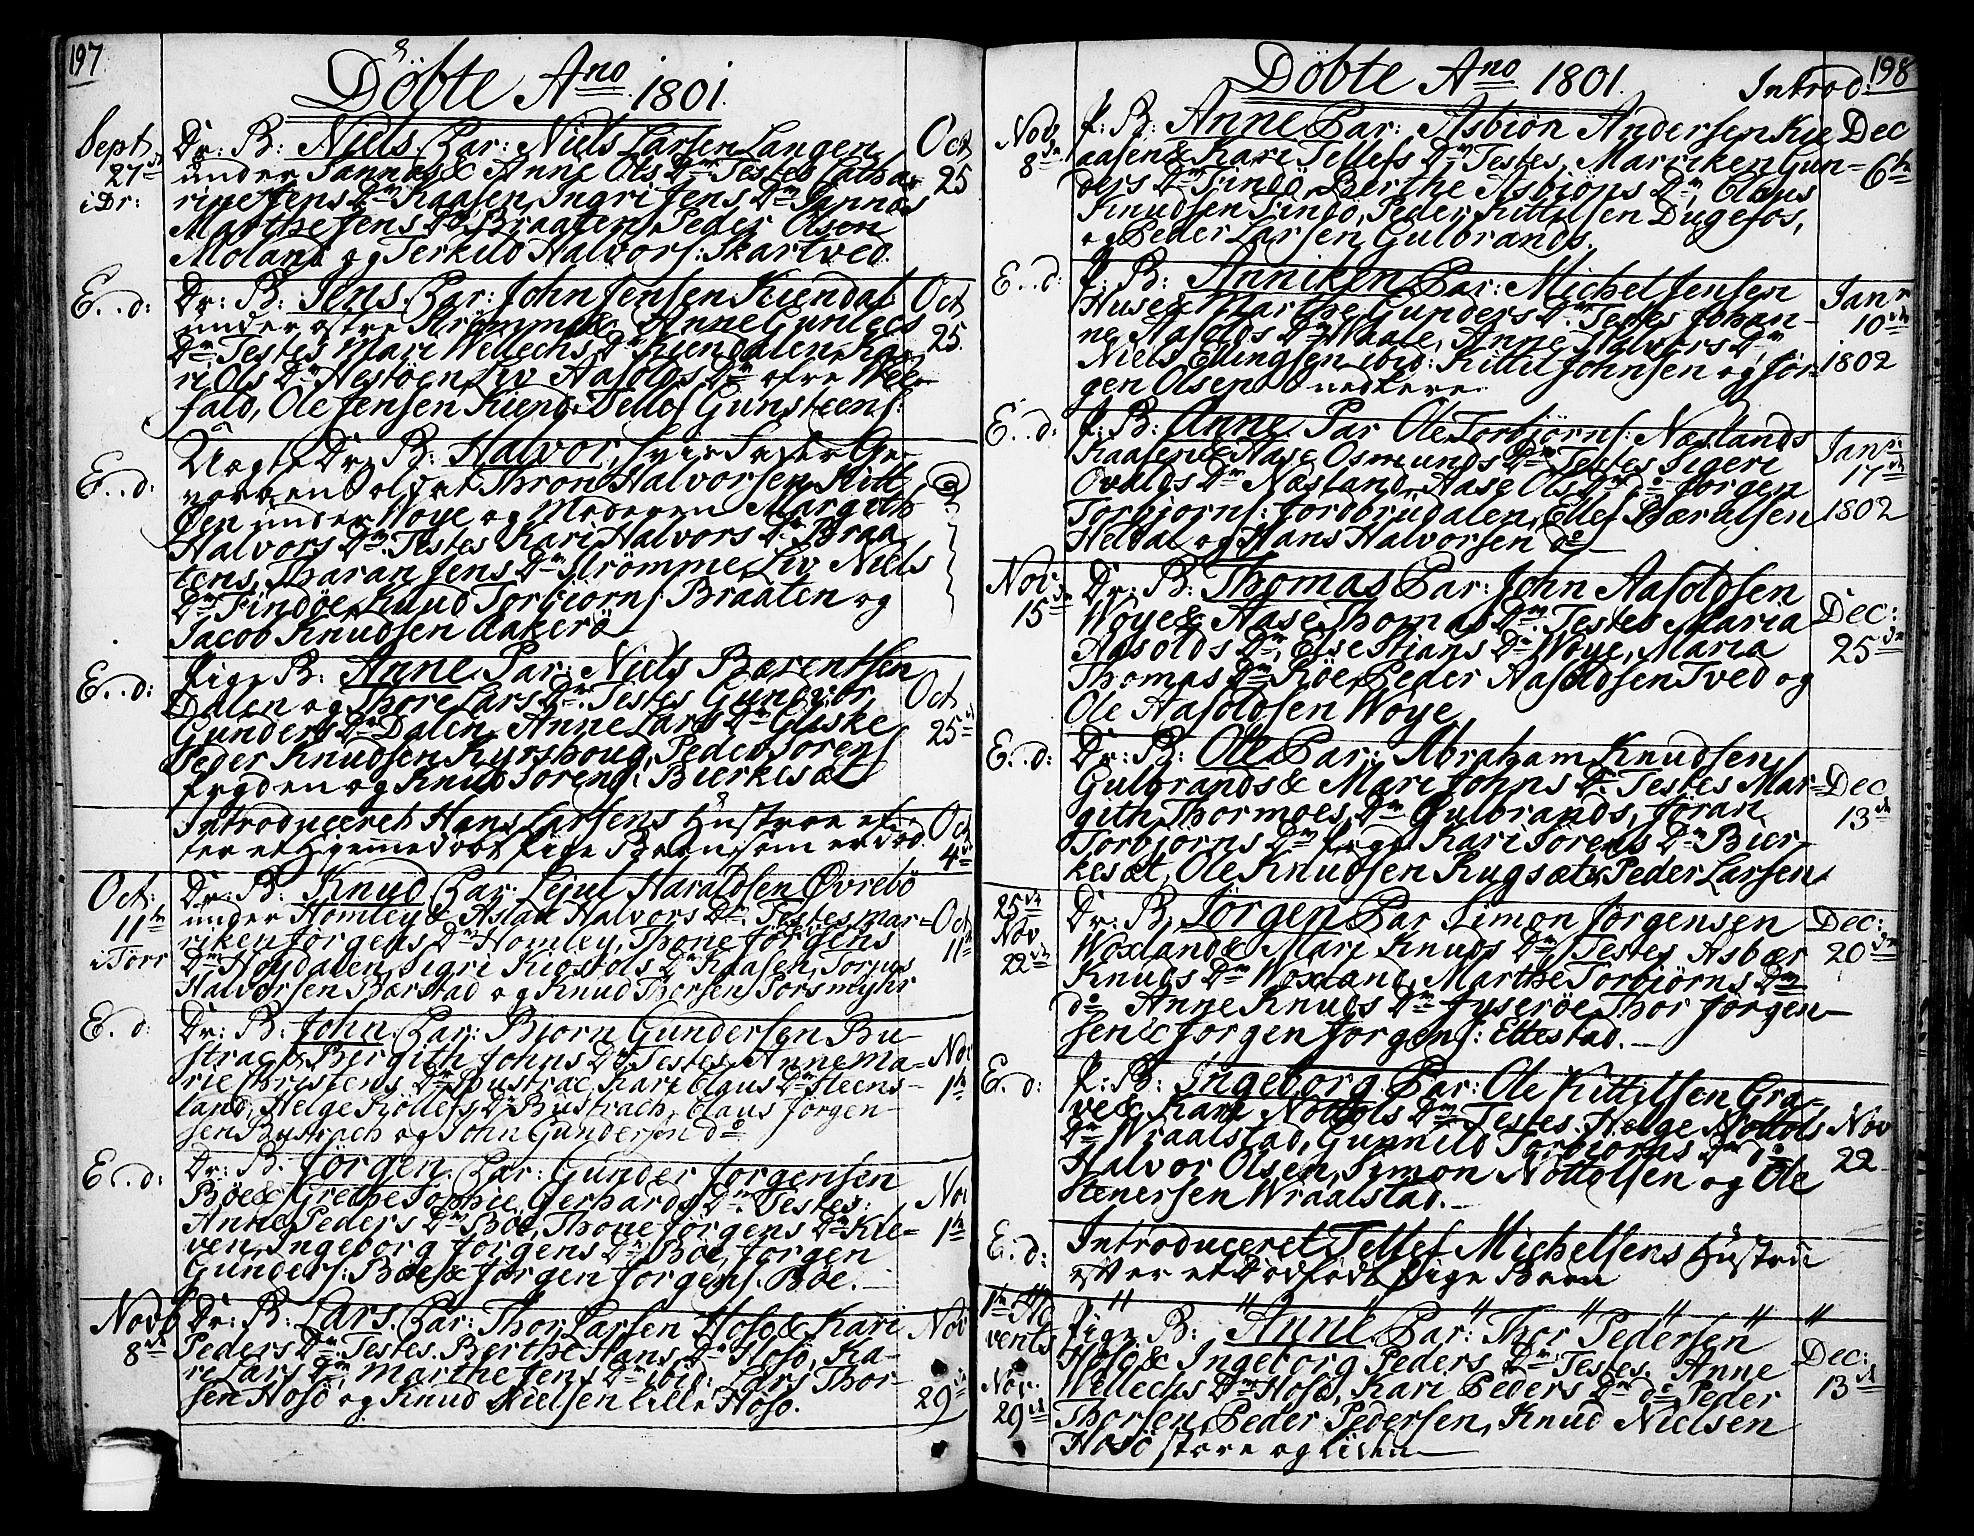 197
Döbte Ano 1801.
Sept. 27de i Dr:
Dr: B: Niels. Par: Niels Larsen Langen
under Jannas & Anne Ols Dr. Testes Catha-
rine Jens Dr Kaasen, Ingri Jens Dr Jannas
Marthe Jens Dr Braaten, Peder Olson
Moland og Terkild Halvors: Skartved.
Oct 25
E. d:
Dr: B: Jens. Par: John Jensen Kiendal
under østre Strömme & Anne Gunders
Dr Testes Mari Wellechs Dr Kiendalen, Ka-
ri Ols Dr Nestöen, Liv Aasolds Dr øfre Wee-
fald, Ole Jensen Kiend: Tellef Gunsteens:
Oct 25
E. d:
Uægte Dr: B: Halvor, hvis Fader Ge-
vorben Soldat Thron Halvorsen Kitt
Øen under Woye og Moderen Margith
Halvors Dr. Testes Kari Halvors Dr Braa-
tens, Tharan Jens Dr Strömme, Liv Niels
Dr Findöe, Knud Torbiorns: Braaten og
Jacob Knudsen Aakerö
E. d:
Pige B: Anne. Par: Niels Bærentsen
Dalen og Thore Lars Dr. Testes Gunevor
Gunders Dr Dalen, Anne Lars Dr Gliske
Peder Knudsen Kyrshoug, Peder Sörens
Frgden og Knud Sorens: Bierkesæt
Oct 25de
Introduceret Hans Larsens Hustroe ef-
ter et Hjemmedøbt Pige Barn som er död.
Oct 4de
Oct: 11te i Torr
Dr: B: Knud Par: Lejul Haraldsen Övrebö
under Homley & Aslau Halvors Dr. Testes Mar-
riken Jörgens Dr Homley, Thone Jörgens
Dr Höydalen, Sigri Kiöstols Dr Kaasen, Torjus
Halvorsen Bærstad og Knud Thorsen Torsmyhr
Oct 11te
E. d:
Dr: B: John. Par: Bjorn Gundersen Bu-
strac & Bergith Johns Dr. Testes Anne Ma-
rie Christens Dr Bustrac, Kari Claus Dr Steens-
land, Helge Kjöllefs Dr Bustrach, Claus Jörgen-
sen Bustrach og John Gundersen do
Nov 1te
E. d:
Dr: B. Jörgen. Par: Gunder Jörgensen
Böe & Grethe Sophie Gerhards Dr Testes:
Anne Peders Dr Böe, Thone Jörgens Dr Kle-
ven, Ingeborg Jörgens Dr Böe, Jörgen
Gunders: Böe & Jörgen Jörgens. Böe.
Nov 1te
Novb 8de
Dr: B: Lars. Par: Thor Larsen Hosö & Kari
Peders Dr. Testes. Berthe Hans Dr Hosö, Ka-
ri Lars Dr, Marthe Jens Dr ibid: Lars Thor-
sen Hosö og Knud Nielsen Lille Hosö.
Nov 29de
198
Döbte Ano 1801.
Introd:
Nov 8de
P: B: Anne Par: Asbiön Andersen Kie
aasen & Kari Tellefs Dr Testes, Marriken Gun-
ders Dr Findö, Berthe Asbiöns Dr, Claus
Knudsen Findö, Peder Kittilsen Dugefos,
og Peder Larsen Gulbrands.
Dec 6te
E. d:
P: B: Anniken Par: Michel Jensen
Huse & Marthe Gunders Dr Testes Johan-
ne Aasolds Dr Waale, Anne Halvors Dr
Niels Ellingsen ibid: Kittil Johnsen og Jör-
gen Olsen
Jan 10de 1802
E. d:
P: B: Anne. Par Ole Torbjörns: Næslands
Kaasen & Aase Osmunds Dr Testes Sigeri
Ovalds Dr Næsland, Aase Ols Dr do Jörgen
Torbjorns: Jordbrudalen, Ellef Bærulsen
Heldal og Hans Halvorsen do
Jan 17de 1802
Nov 15de
Dr: B: Thomas Par: John Aasoldsen
Woye & Aase Thomas Dr. Testes Maria
Aasolds Dr, Else Stians Dr Woye, Maria
Thomas Dr Röe, Peder Aasoldsen Tved og
Ole Aasoldsen Woye
Dec: 25de
E. d:
Dr: B: Ole Par: Abraham Knudsen
Gulbrands & Mari Johns Dr: Testes Mar-
gith Thormoes Dr Gulbrands, Jöran
Torbjörns Dr Frgd: Kari Sörens Dr Bier-
kesæt, Ole Knudsen Rugsæt & Peder Larsen
Dec 13de
25de Nov 22de
Dr: B: Jörgen Par Simon Jörgensen
Woxland & Mari Knuds Dr, Testes Asbær
Knuds Dr Woxland, Marthe Torbjörns Dr
do Anne Knuds Dr Fuseröe, Thor Jörgen-
sen & Jörgen Jörgens: Ettestad.
Dec: 20de
E. d:
P: B: Ingeborg. Par: Ole Kittilsen Gra-
ve & Kari Nottols Dr. Testes. Helge Nottols
Dr Wraalstad, Gunnild Torbiorns Dr do
Halvor Olsen, Simon Nottolsen og Ole
Stenersen Wraalstad.
Nov 22
E. d:
Introduceret Tellef Michelsens Hustru
efter et Dødfødt Pige Barn
1te Advents Nov. 29de
Pige B: Anne Par: Thor Pedersen
Hosö & Ingeborg Peders Dr. Testes. Anne
Wellechs Dr Hosö, Kari Peders Dr do Peder
Thorsen, Peder Pedersen, Knud Nielsen
Hosö store og liden
Dec: 13de